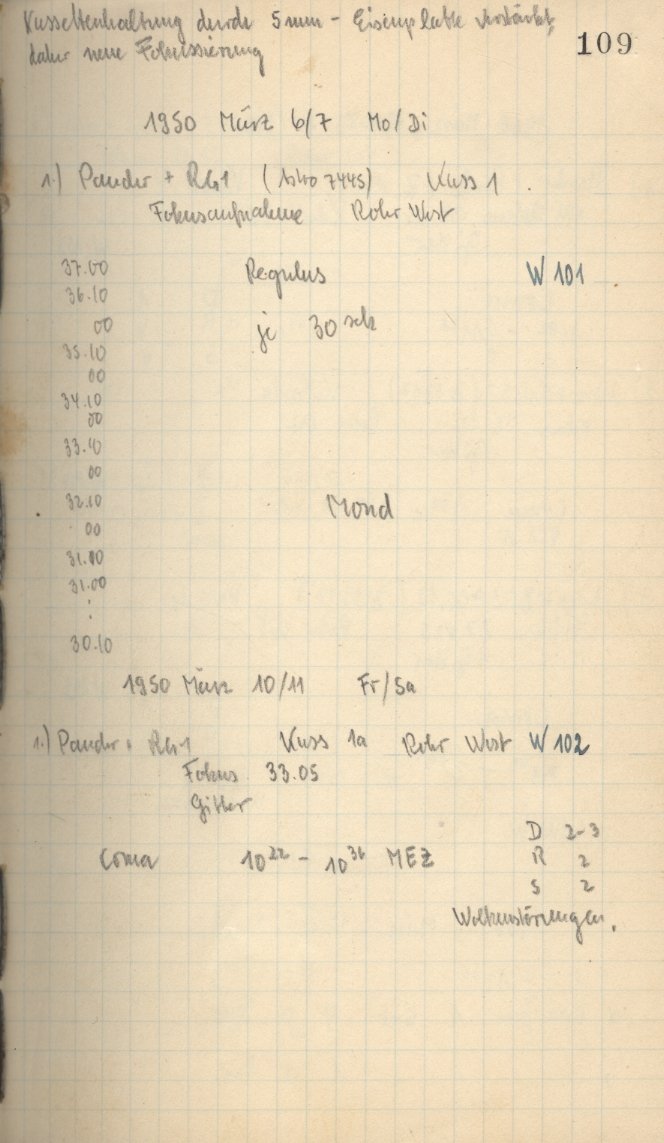 Kassettenhaltung durch 5 mm - Eisenplatte verstärkt,
109
daher neue Fokussierung
1950 März 6/7 Mo/Di
1.) Pander + RG1 (Astro 7445) Kass 1.
Fokusaufnahme Rohr West
37.00 Regulus W 101
36.10
00 je 30 sek
35.10
00
34.10
00
33.10
00
32.10 Mond
00
31.10
31.00
:
30.10
1950 März 10/11 Fr/Sa
1.) Pander + RG1 Kass 1a Rohr West W 102
Fokus 33.05
Gitter
D 2-3
Coma 10²² - 10³⁶ MEZ R 2
S 2
Wolkenstörungen.